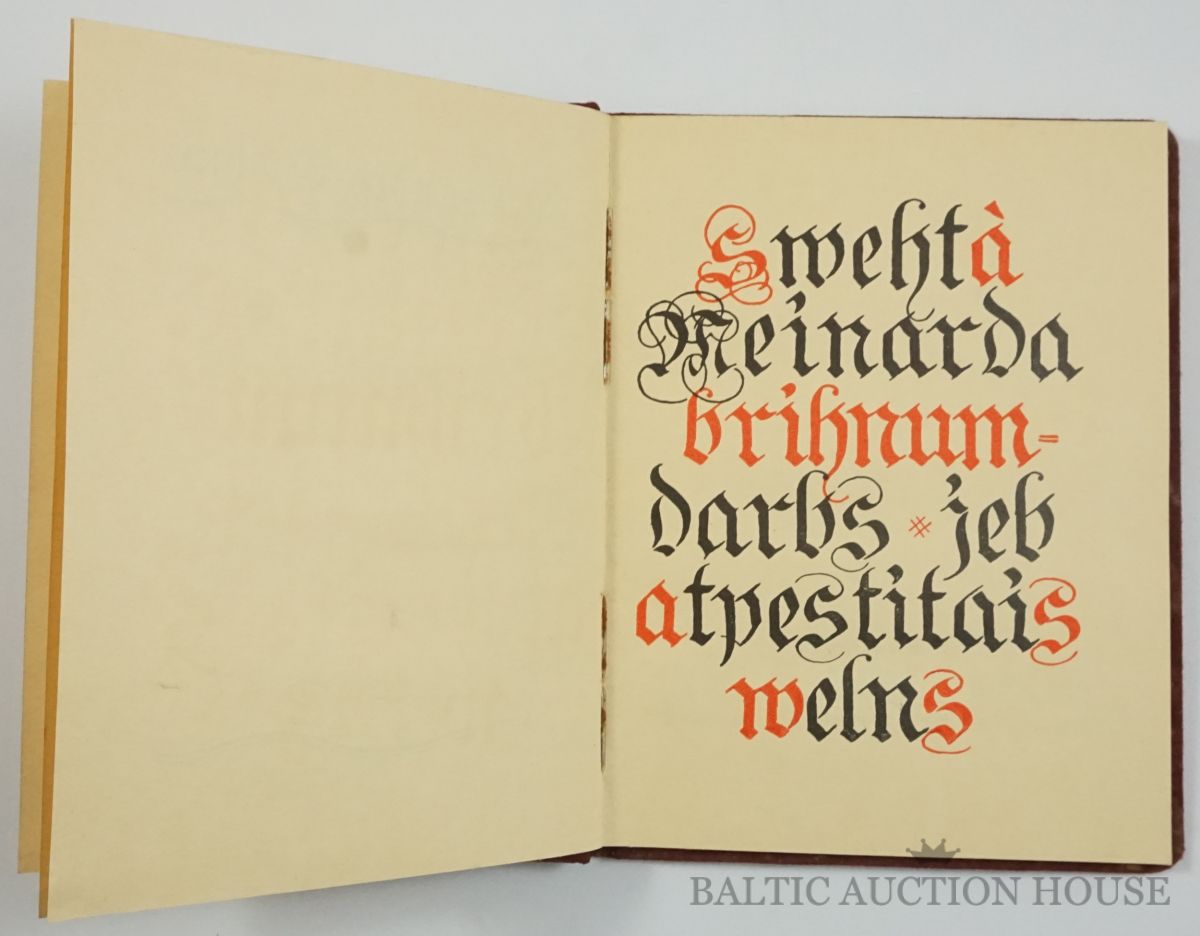 Swehtà
Meinarda
brihnum-
darbs * jeb
atpestitais
welns
BALTIC AUCTION HOUSE